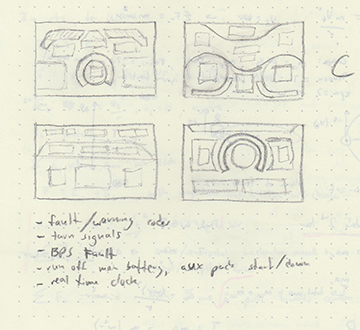 C
- fault/warning codes
- turn signals
- BPS Fault
- run off main battery, aux pack start/down
- real time clock